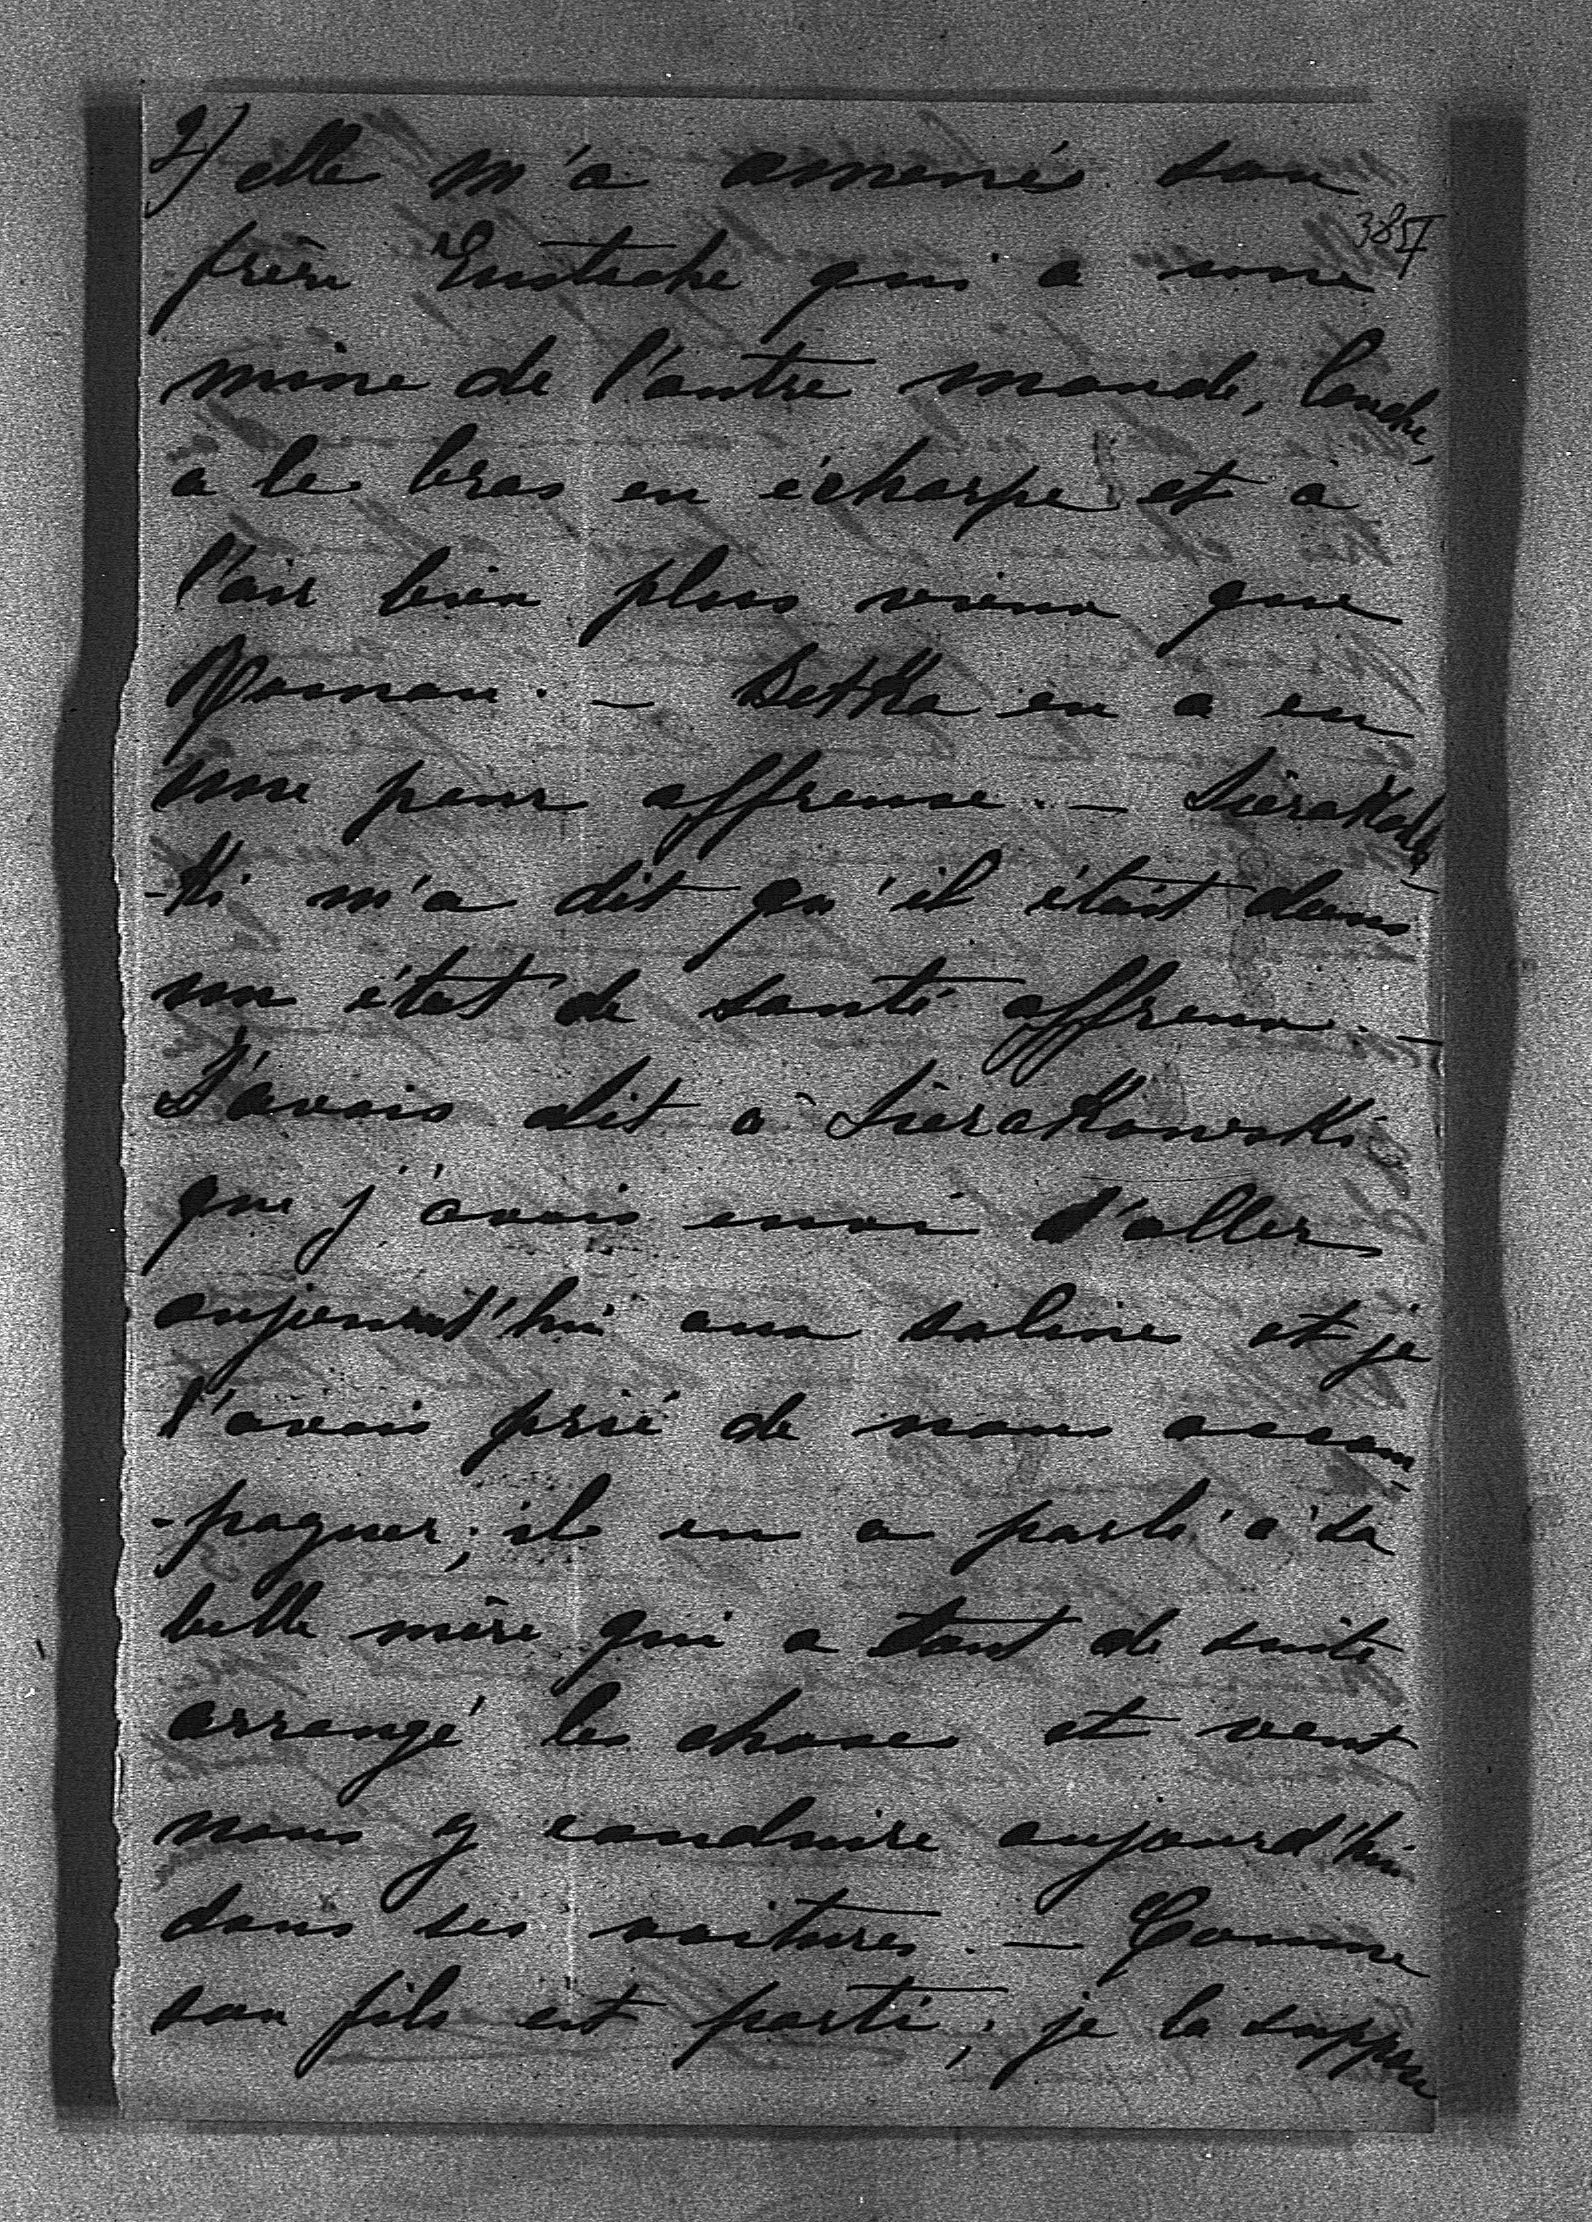 2) elle m'a amené son
385
frère Eustache qui a une
mine de l'autre monde, louche,
a le bras en écharpe et a
l'air bien plus vieux que
Roman. — Betka en a eu
une peur affreuse. — Sierakows
-ki m'a dit qu'il était dans
un état de santé affreux. —
J'avais dit à Sierakowski
que j'avais envie d'aller
aujourd'hui aux salines et je
l'avais prié de nous accom
-pagner; il en a parlé à sa
belle mère qui a tout de suite
arrangé les choses et veut
nous y conduire aujourd'hui
dans ses voitures. — Comme
son fils est parti, je la suppose